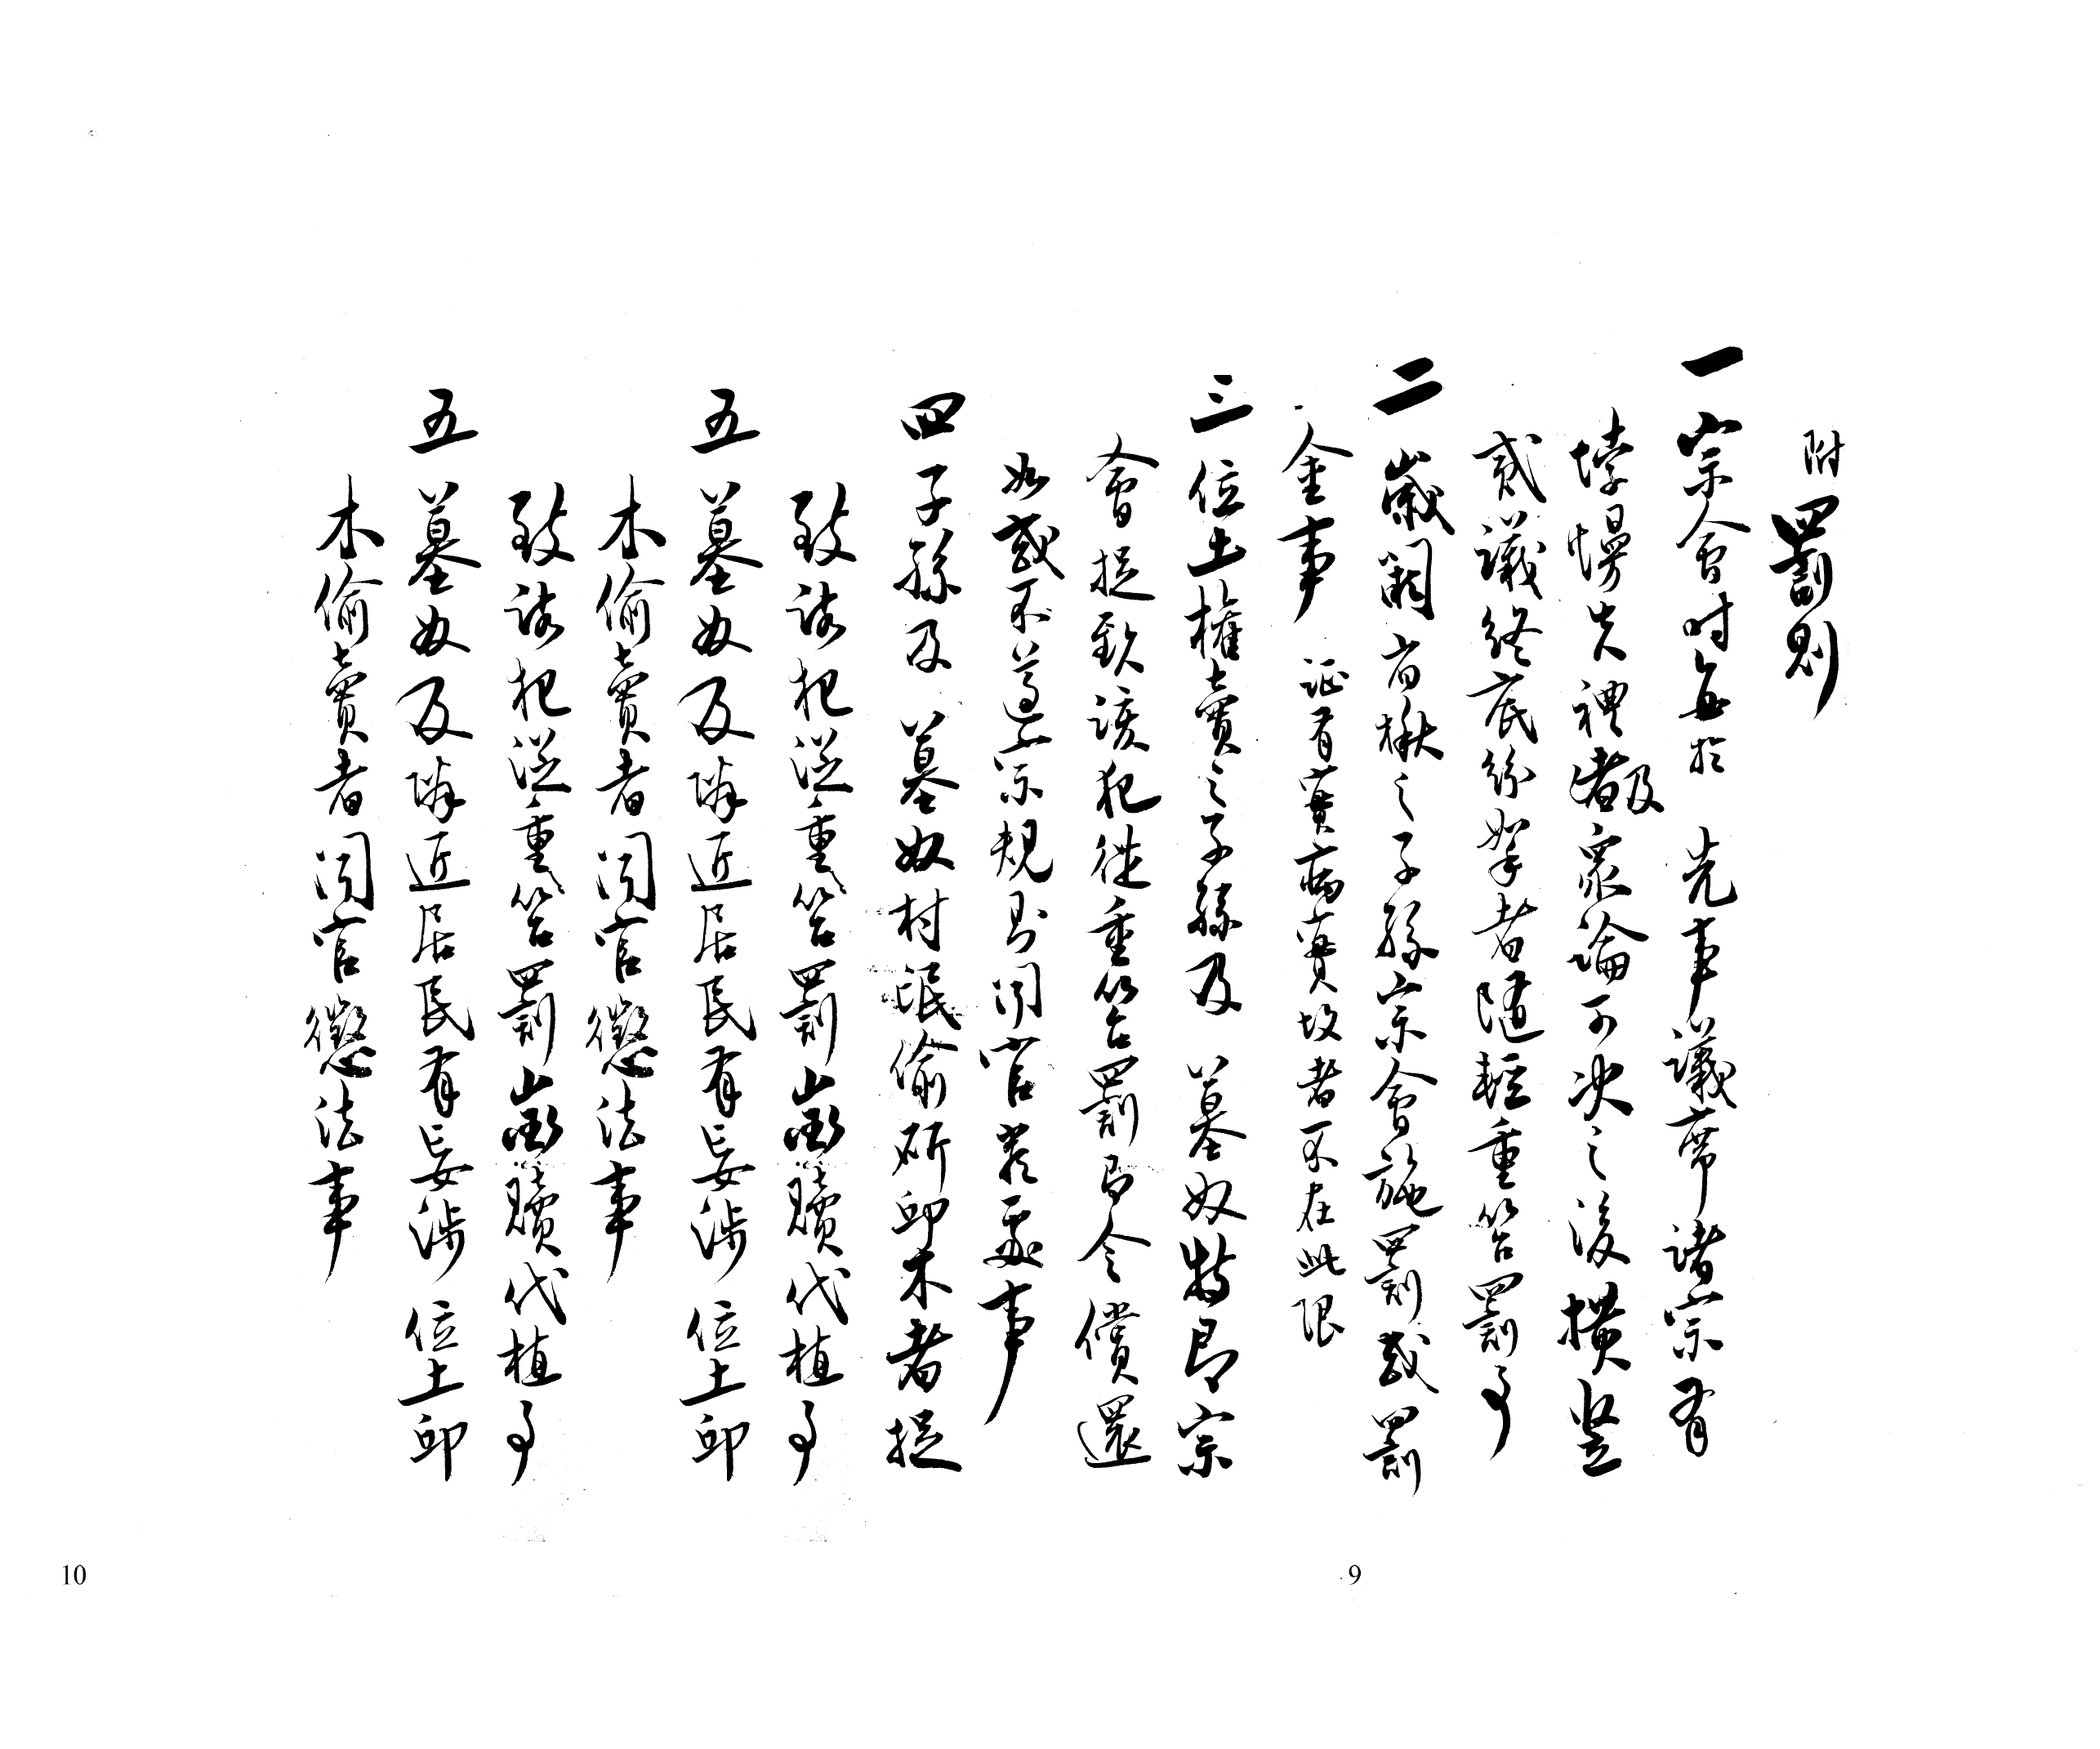 附罰則
一 宗會時每於 先事議席諸宗有
悖慢失禮者及衆論可決之後橫竪
貳議終底紛拏者隨輕重笞罰事
二 歲閣省楸之子孫宗會施罰或罰
金事 証有實病實故者不在此限
三 位土權賣之子孫及 墓奴特即宗
會捉致該犯從重笞罰即令償還
如或不遵宗規則聞官差處事
四 子孫及 墓奴村氓偷斫邱木者捉
致該犯從重笞罰山直贖代植事
五 墓奴及隣近居民有妄涉 位土邱
木偷賣者聞官懲法事
致該犯從重笞罰山直贖代植事
五 墓奴及隣近居民有妄涉 位土邱
木偷賣者聞官懲法事
9
10